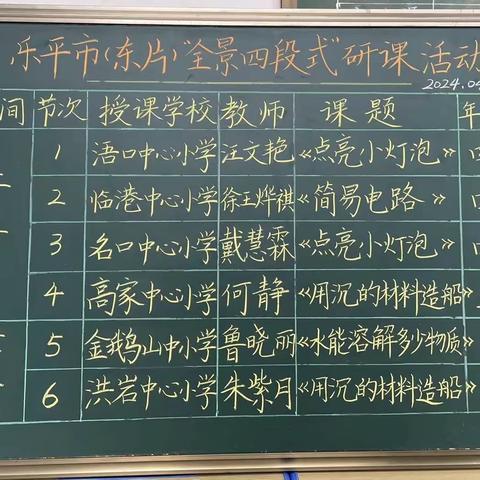 乐平市(东片)"全景四段式"研课活动
2024.04
间 节次 授课学校 教师 课题 年
1 浯口中心小学 汪文艳 《点亮小灯泡》
2 临港中心小学 徐王烨祺 《简易电路》
3 名口中心小学 戴慧霖 《点亮小灯泡》
4 高家中心小学 何静 《用沉的材料造船》
5 金鹅山中小学 鲁晓丽 《水能溶解多少物质》
6 洪岩中心小学 朱紫月 《用沉的材料造船》